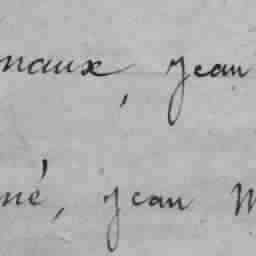 naux, Jean
né, Jean M